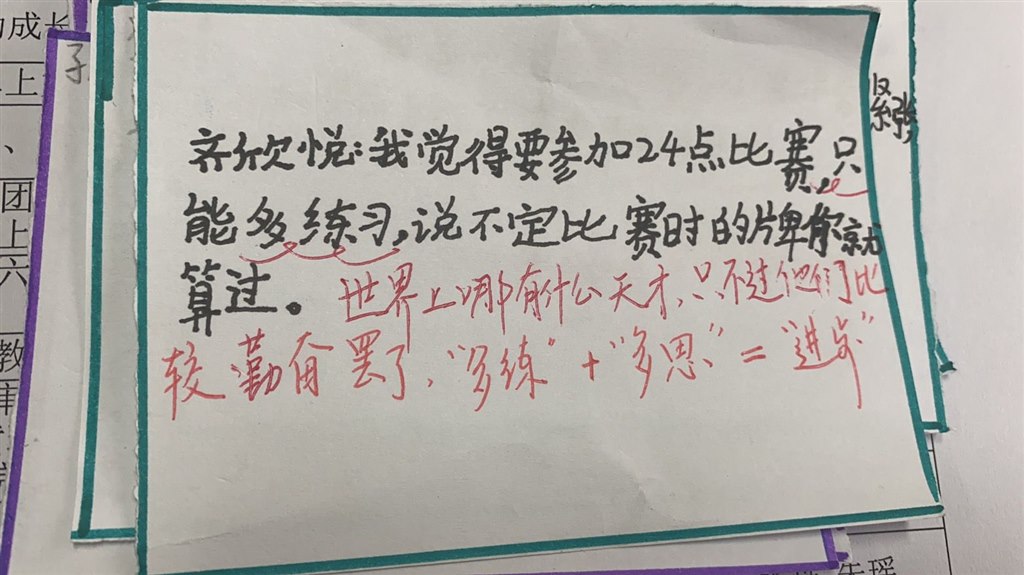 的成长
上
、
团
上
六
教
子
紧张
齐欣悦:我觉得要参加24点比赛,只
能多练习,说不定比赛时的牌你就
算过。世界上哪有什么天才,只不过他们比
较勤奋罢了,“多练”+“多思”=“进步”
朱瑶